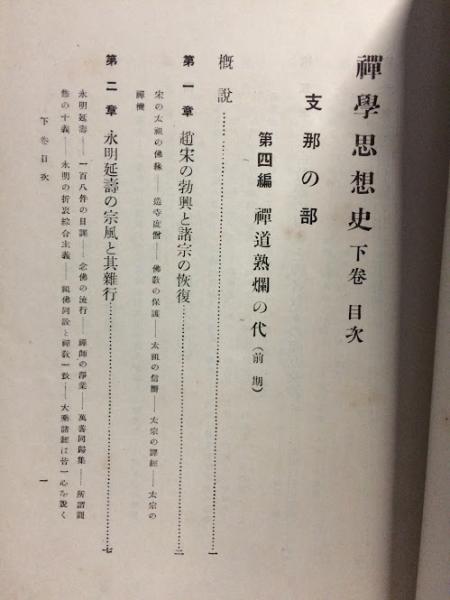 禪學思想史 下卷 目次
支那の部
第四編 禪道熟爛の代(前期)
概說……一
第一章 趙宋の勃興と諸宗の恢復……二
宋の太祖の佛緣――造寺度僧――佛敎の保護――太祖の信嚮――太宗の譯經――太宗の
禪機
第二章 永明延壽の宗風と其雜行……七
永明延壽――一百八件の日課――念佛の流行――禪師の淨業――萬善同歸集――所謂圓
修の十義――永明の折衷綜合主義――禪敎一致――大乘諸經は皆一心を說く
下卷目次
一